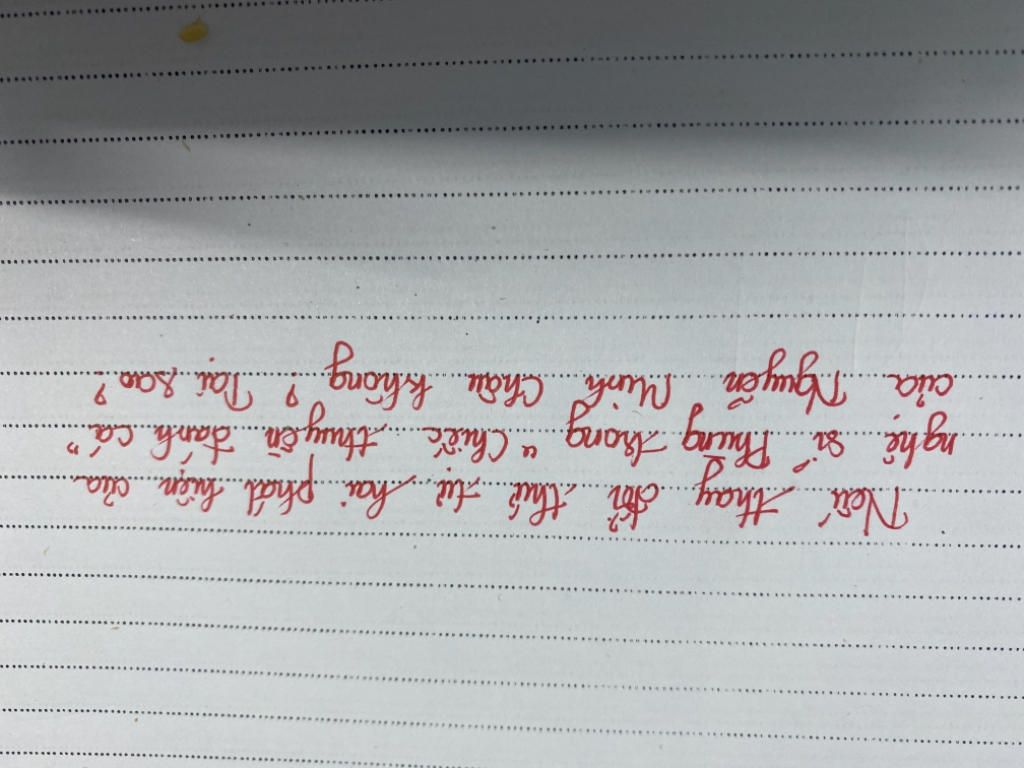 Nếu thay đổi thứ tự hai phát hiện của
nghệ sĩ Phùng trong "Chiếc thuyền đánh cá"
của Nguyễn Minh Châu không ? Tại sao ?